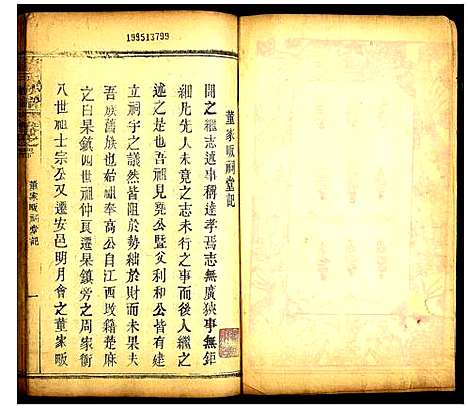 199513799
董家畈祠堂記
聞之繼志述事稱達孝焉志無廣狹事無鉅
細凡先人未竟之志未行之事而後人繼之
述之皆是也吾祖見堯公暨父利和公皆有建
立祠宇之議然皆阻於勢絀於財而未果夫
吾族舊族也始祖奉高公自江西坂籍楚麻
之白杲鎮四世祖仲貫遷杲鎮旁之周家衝
八世祖士宗公又遷安邑明月會之董家畈
董家畈祠堂記
一